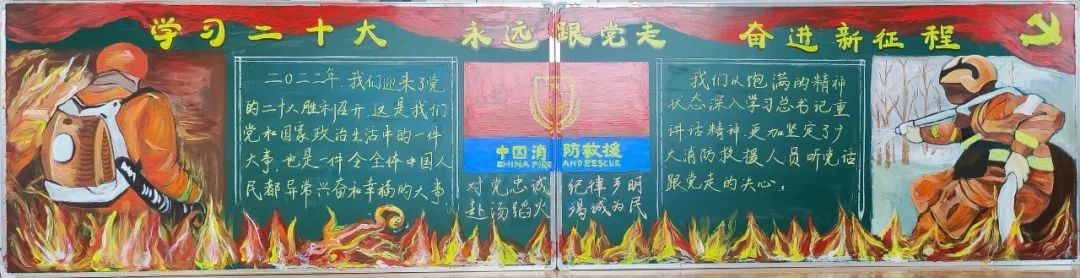 学习二十大 永远跟党走 奋进新征程
二〇二二年，我们迎来了党
的二十大胜利召开，这是我们
党和国家政治生活中的一件
大事，也是一件令全体中国人
民都异常兴奋和幸福的大事
中国消防救援
CHINA FIRE AND RESCUE
对党忠诚 纪律严明
赴汤蹈火 竭诚为民
我们以饱满的精神
状态深入学习总书记重
讲话精神，更加坚定了广
大消防救援人员听党话
跟党走的决心。